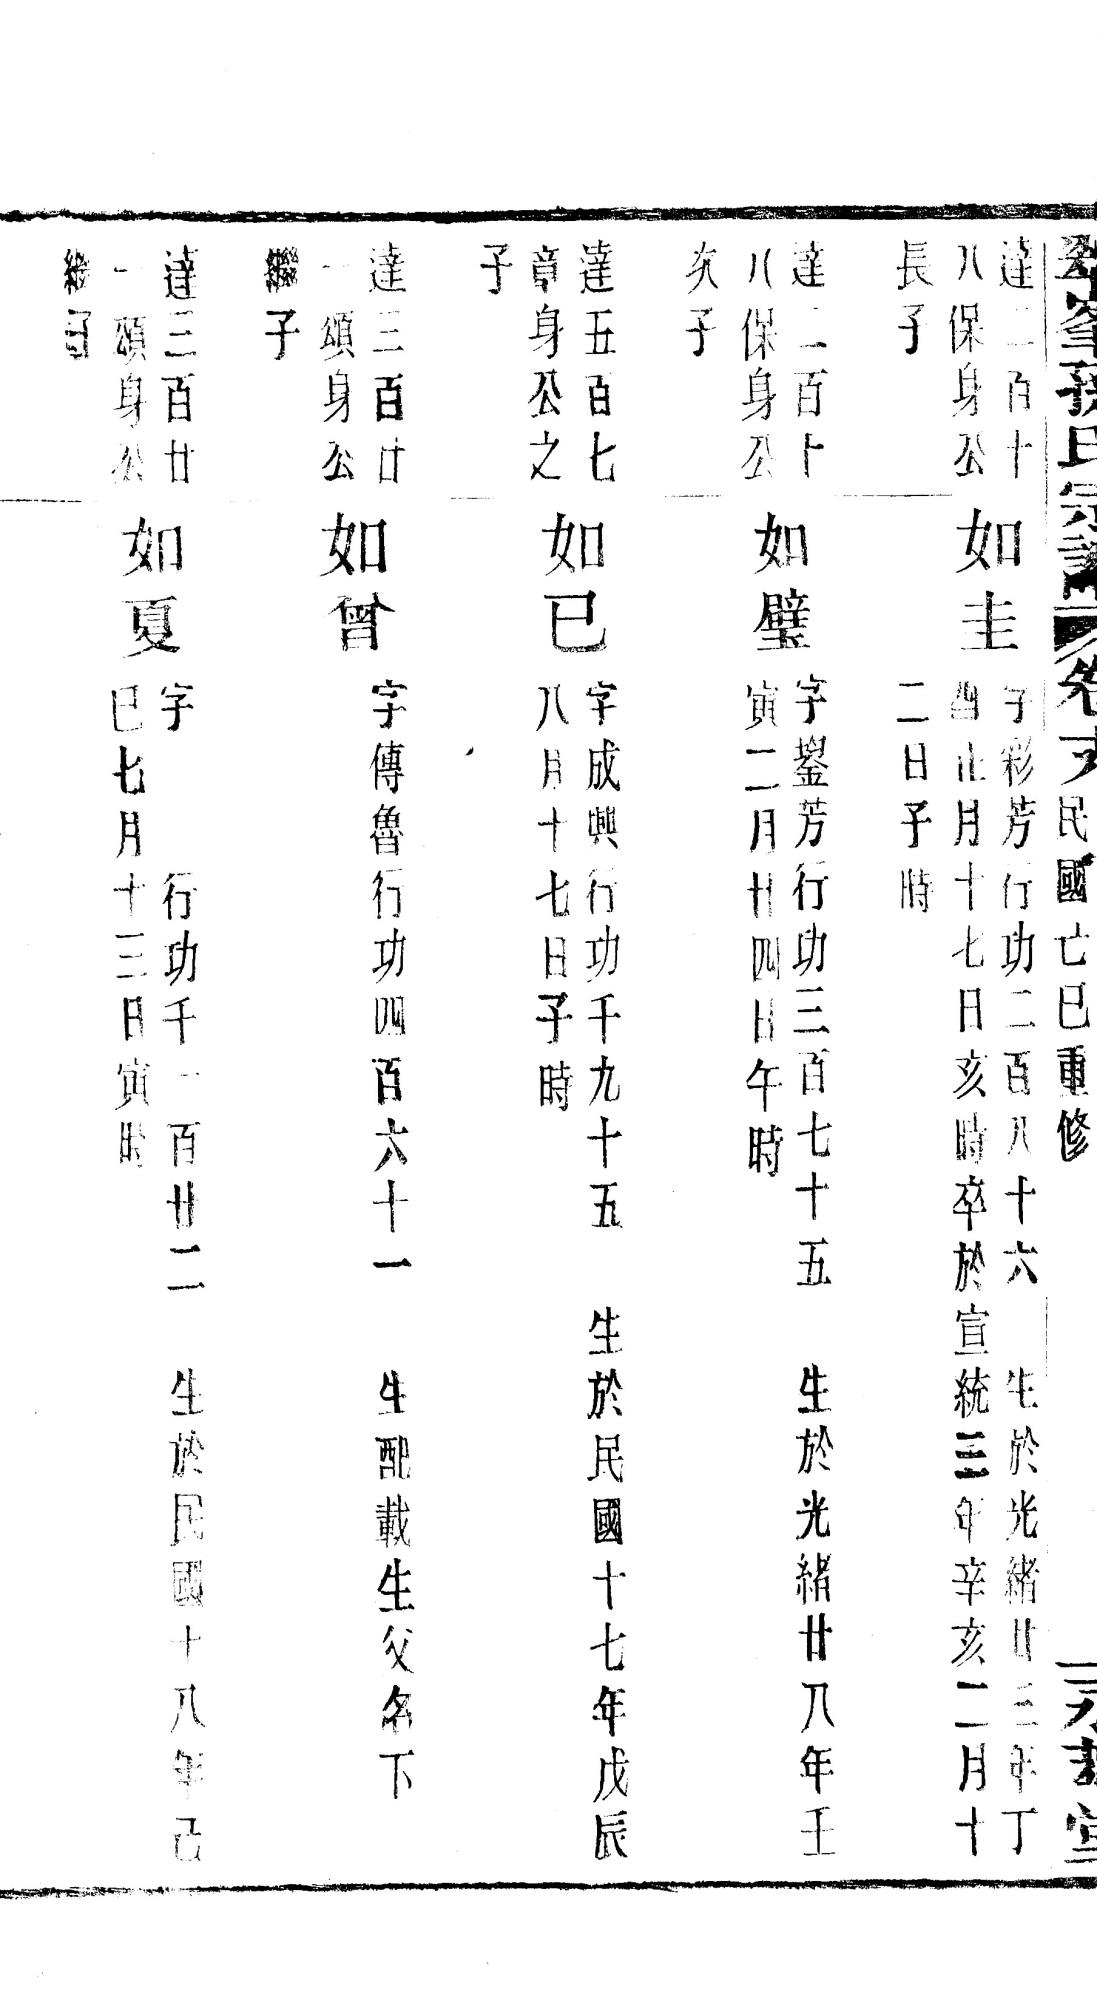 孫氏宗譜
卷
民國亡巳重修
堂
達二百十
八保身公
長子
如圭
字彩芳行功二百八十六　生於光緒廿三年丁
酉正月十七日亥時卒於宣統三年辛亥二月十
二日子時
達二百十
八保身公
次子
如璧
字鋆芳行功三百七十五　生於光緒廿八年壬
寅二月廿四日午時
達五百七
章身公之
子
如已
字成興行功千九十五　生於民國十七年戊辰
八月十七日子時
達三百廿
一頌身公
繼子
如曾
字傳魯行功四百六十一　生配載生父名下
達三百廿
一頌身公
如夏
字　　行功千一百廿二　生於民國十八年己
巳七月十三日寅時